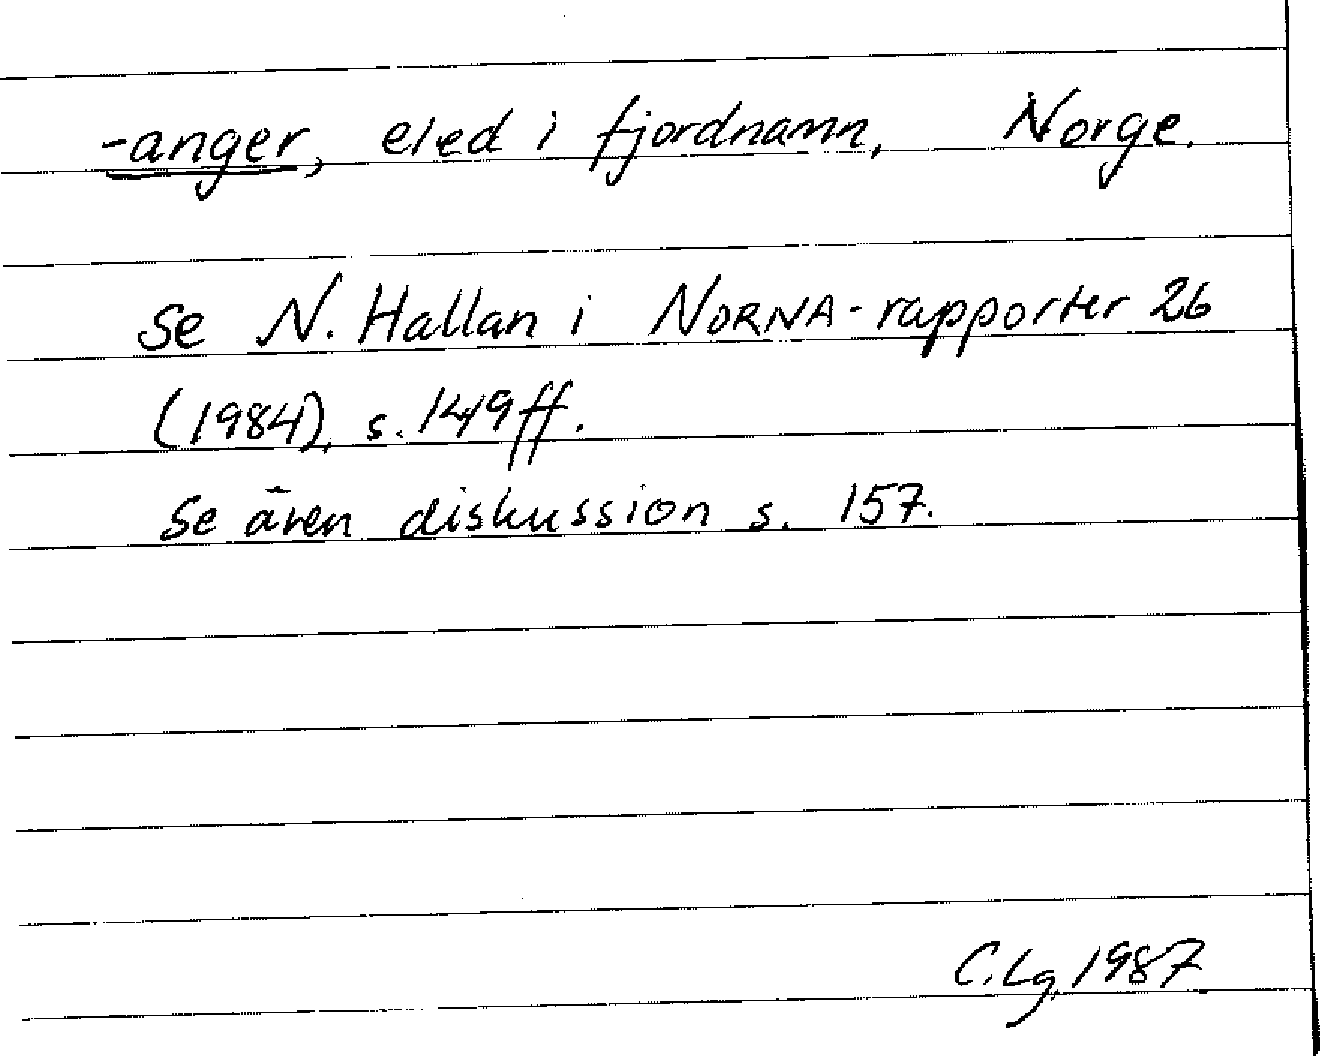 -anger, eled i fjordnamn, Norge.
Se N. Hallan i NORNA-rapporter 26
(1984), s. 149ff.
Se även diskussion s. 157.
C.Lg. 1987